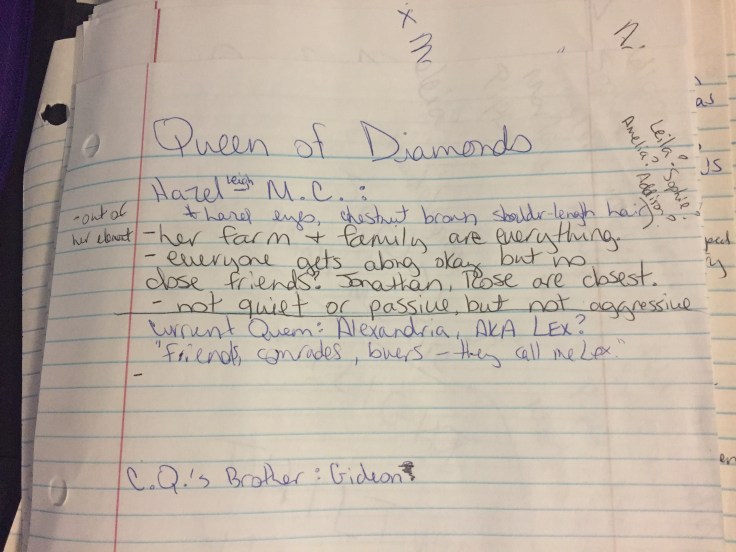 x
2.
Queen of Diamonds
Leila? Sophie?
Amelia? Addison?
Hazel Leigh M.C.:
* hazel eyes, chestnut brown shouldr-length hair
-out of
her element
-her farm + family are everything.
- everyone gets along okay, but no
close friends? Jonathan, Rose are closest.
- not quiet or passive, but not aggressive
Current Queen: Alexandria, AKA Lex?
"friends, comrades, lovers - they call me Lex."
-
C.Q.'s Brother: Gideon
as
JS